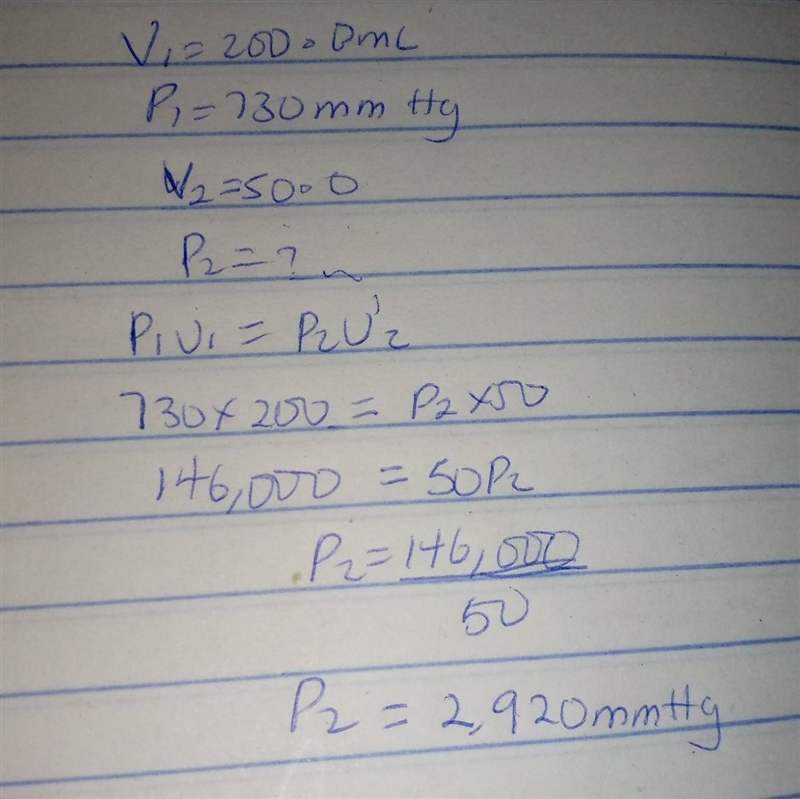 V₁ = 200.0mL
P₁ = 730mm Hg
V₂ = 50.0
P₂ = ?
P₁V₁ = P₂V₂
730 × 200 = P₂ × 50
146,000 = 50P₂
P₂ = 146,000
50
P₂ = 2,920mmHg